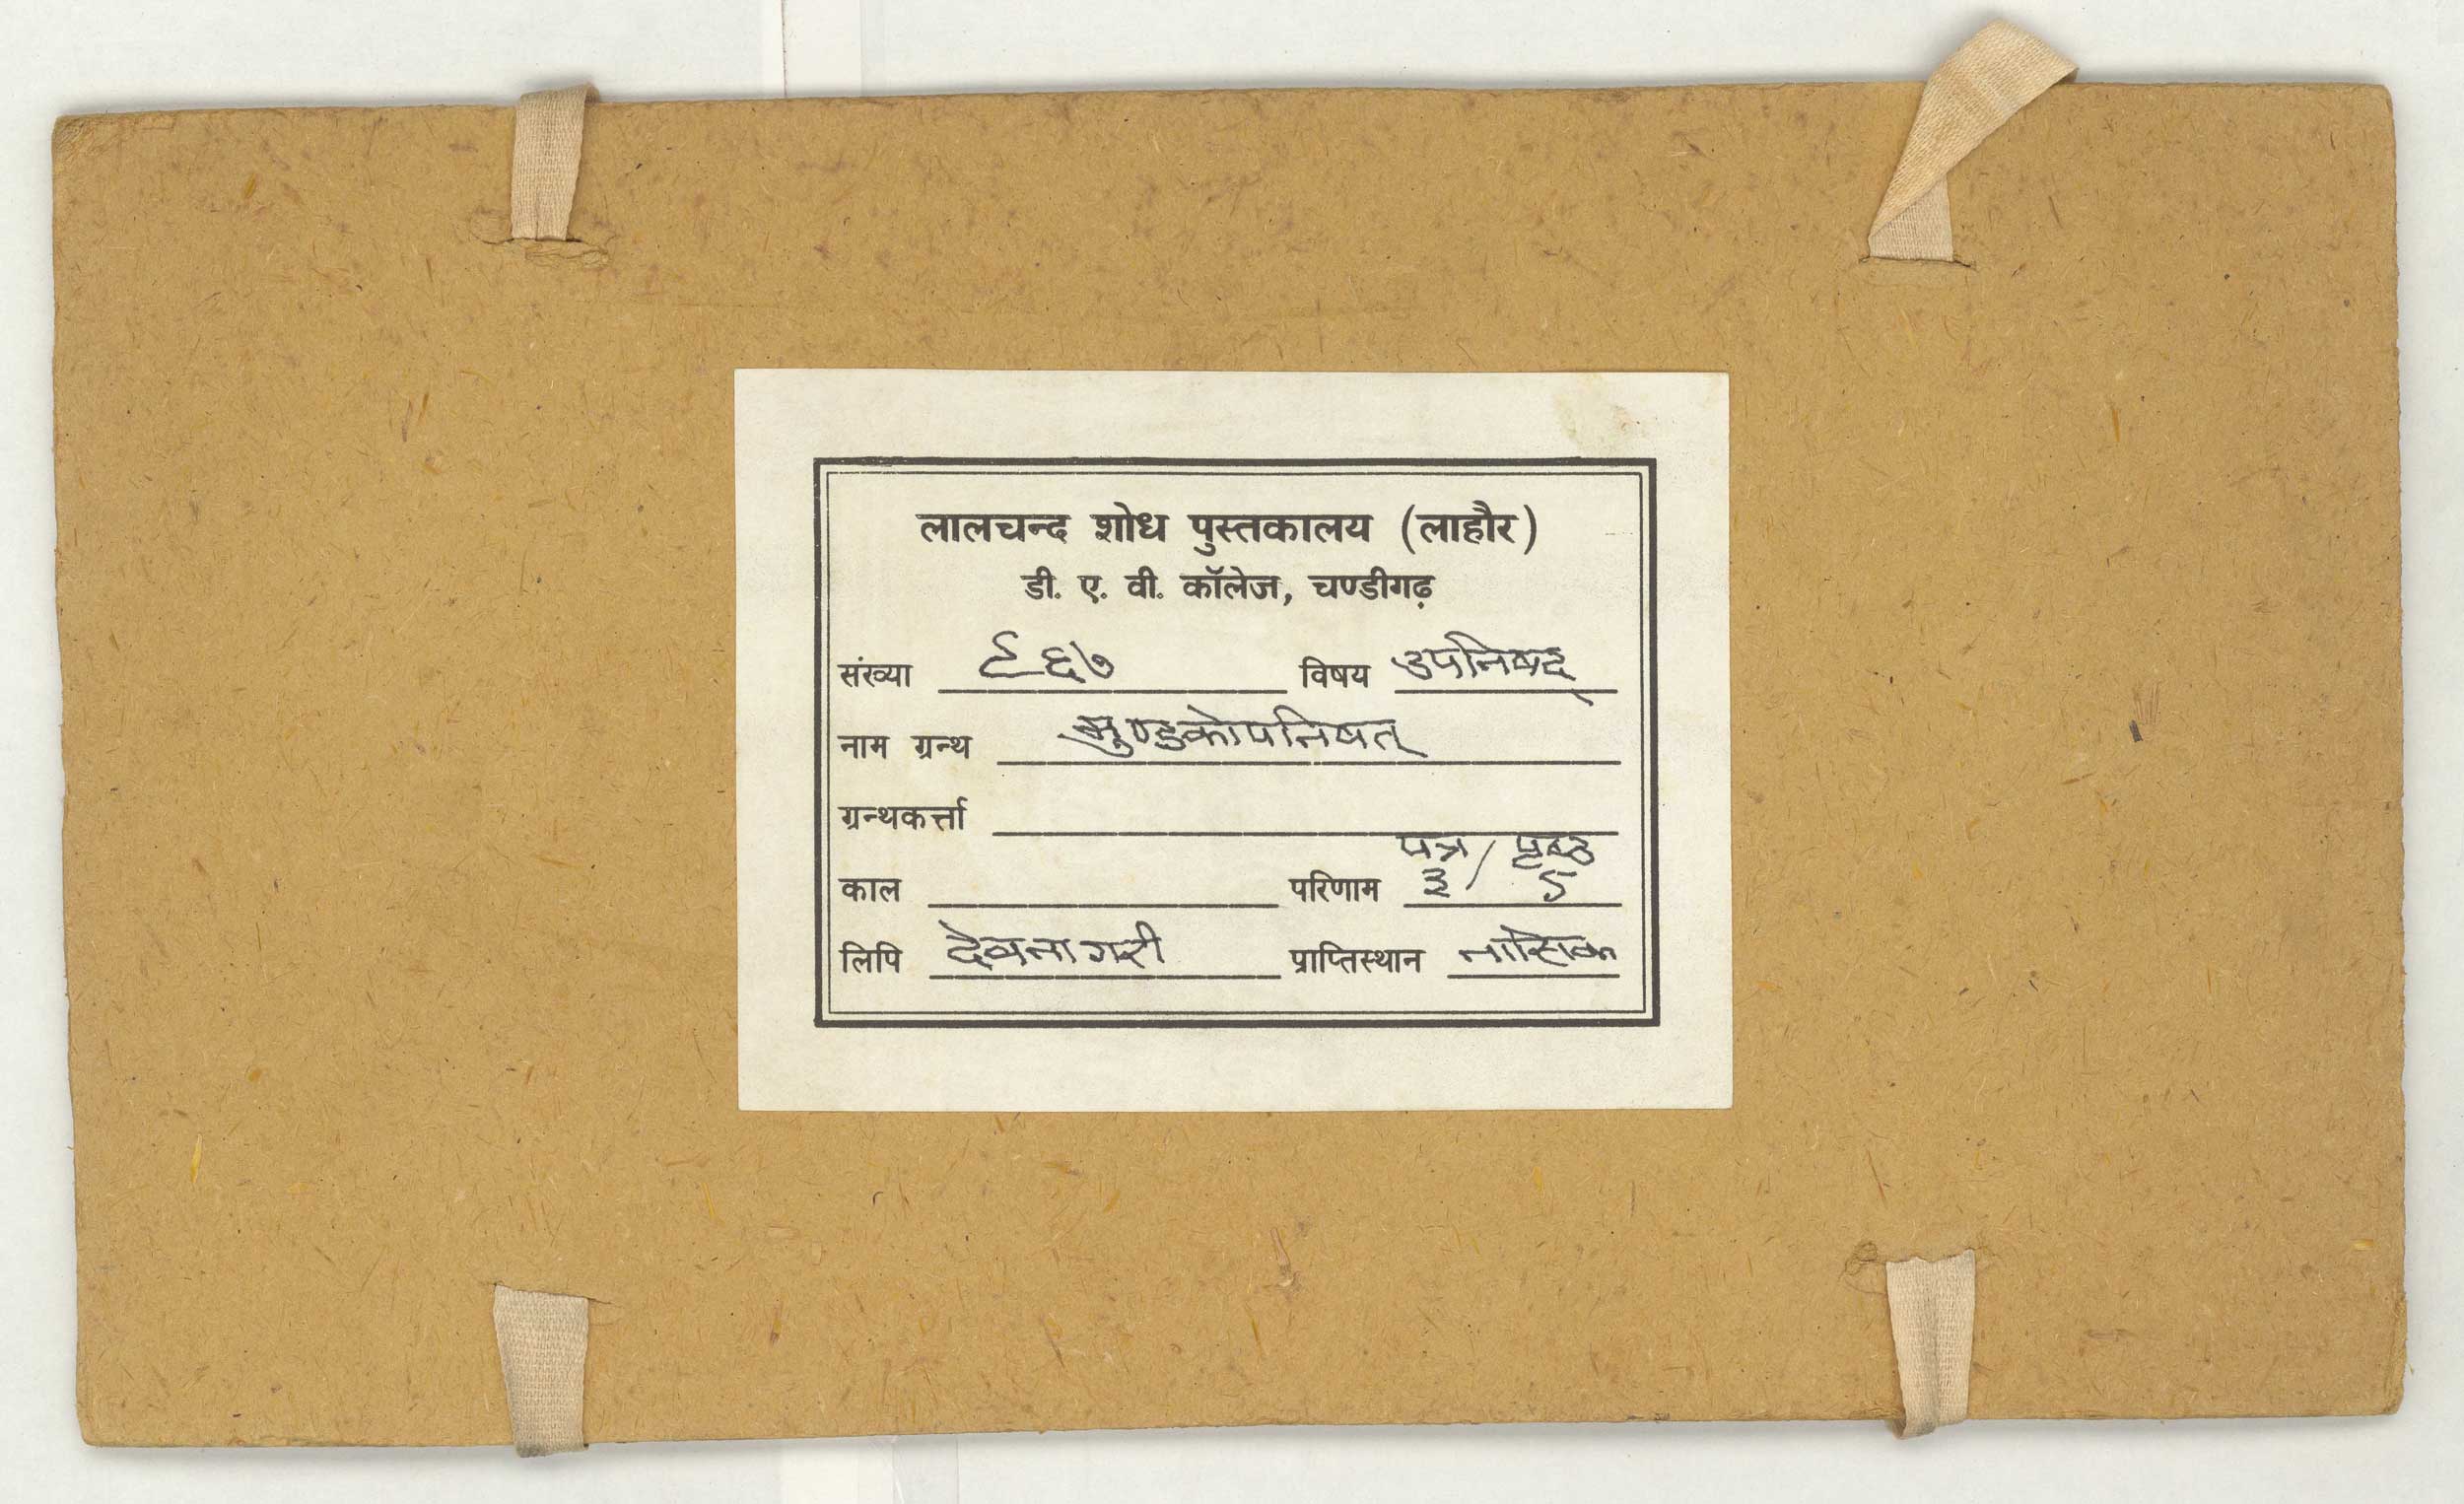 लालचन्द शोध पुस्तकालय (लाहौर)
डी. ए. वी. कॉलेज, चण्डीगढ़
संख्या ९६७ विषय उपनिषद्
नाम ग्रन्थ मुण्डकोपनिषत्
ग्रन्थकर्त्ता
पत्र / पृष्ठ
काल परिणाम ३ / ५
लिपि देवनागरी प्राप्तिस्थान नासिक